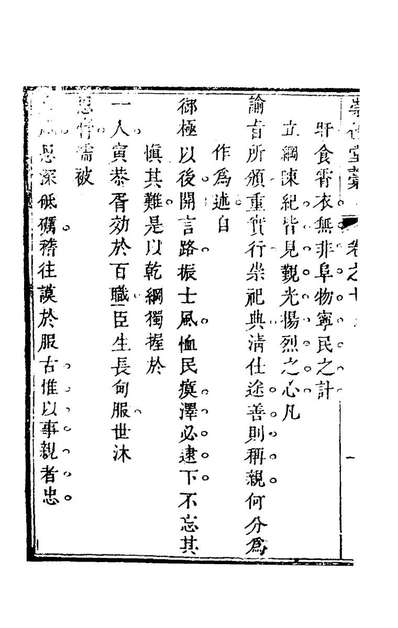 崇德堂藁 卷之七
旰食宵衣無非阜物寧民之計
立綱陳紀皆見覲光揚烈之心凡
諭旨所頒重實行崇祀典清仕途善則稱親何分爲
作爲述自
御極以後開言路振士風恤民瘼澤必逮下不忘其
愼其難是以乾綱獨握於
一人寅恭胥効於百職臣生長甸服世沐
恩膏濡被
恩深砥礪稽往謨於服古惟以事親者忠